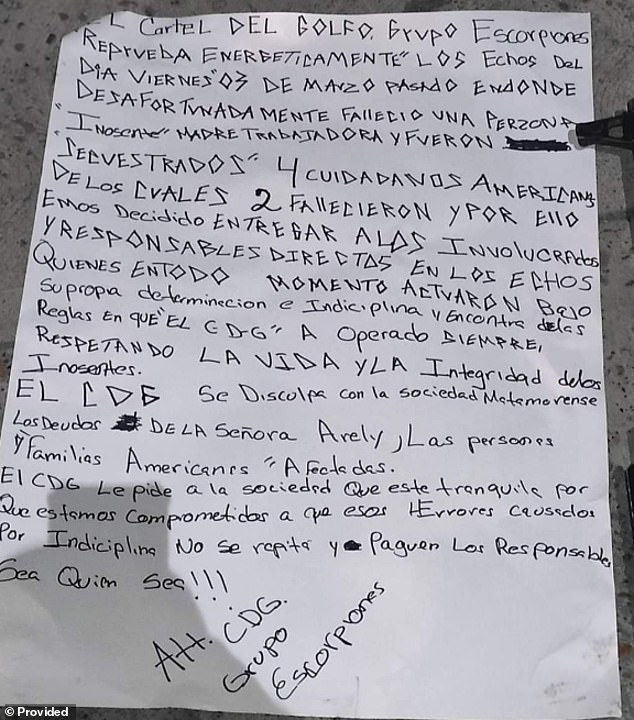 EL Cartel DEL GOLFO. Grupo Escorpiones
REPRUEBA ENERGETICAMENTE" LOS Echos DEL
DIA VIERNES" 03 DE MARZO PASADO ENDONDE
DESAFORTUNADA MENTE FALLECIO UNA PERZONA
"INOSENTE" MADRE TRABAJADORA Y FUERON
"SECUESTRADOS" 4 CUIDADANOS AMERICANS
DE LOS CUALES 2 FALLECIERON Y POR ELLO
Emos Decidido ENTREGAR A LOS INVOLUCRADOS
Y RESPONSABLES DIRECTOS EN LOS ECHOS
QUIENES ENTODO MOMENTO ACTUARON BAJO
Su propa determinacion e Indiciplina y Encontra delas
Reglas En que "EL CDG" A Operado SIEMPRE,
RESPETANDO LA VIDA Y LA Integridad delos
Inosentes.
EL CDG Se Disculpa con la sociedad Matamorense
Los Deudos DE LA Señora Arely, Las personas
y Familias Americanas "Afectadas.
El CDG Le pide a la sociedad Que este tranquila por
Que estamos comprometidos a que esos Errores Causados
Por Indiciplina No se repita y Paguen Los Responsables
Sea Quien Sea!!!
Att. CDG.
Grupo
Escorpiones
Provided